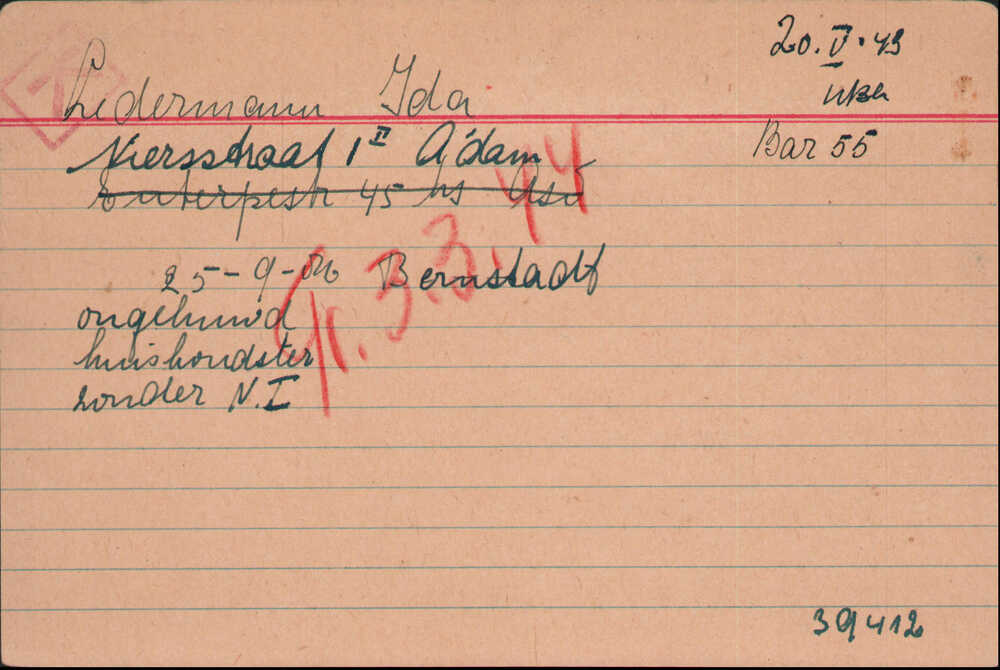 20.V.43
Ledermann Ida
Bar 55
Niersstraat 1 II A'dam
Euterpestr 45 hs Asd
25-9-06 Bernstadt
ongehuwd
huishoudster
zonder N.I
3.3.44
39412